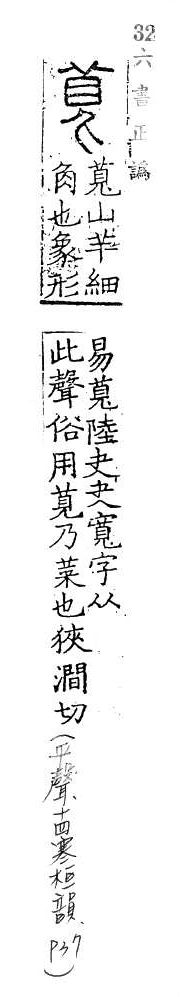 32
六書正譌
萈
萈山羊細
角也象形
易萈陸夬夬寬字从
此聲俗用莧乃菜也狹澗切
(平聲、十四寒桓韻、P37)